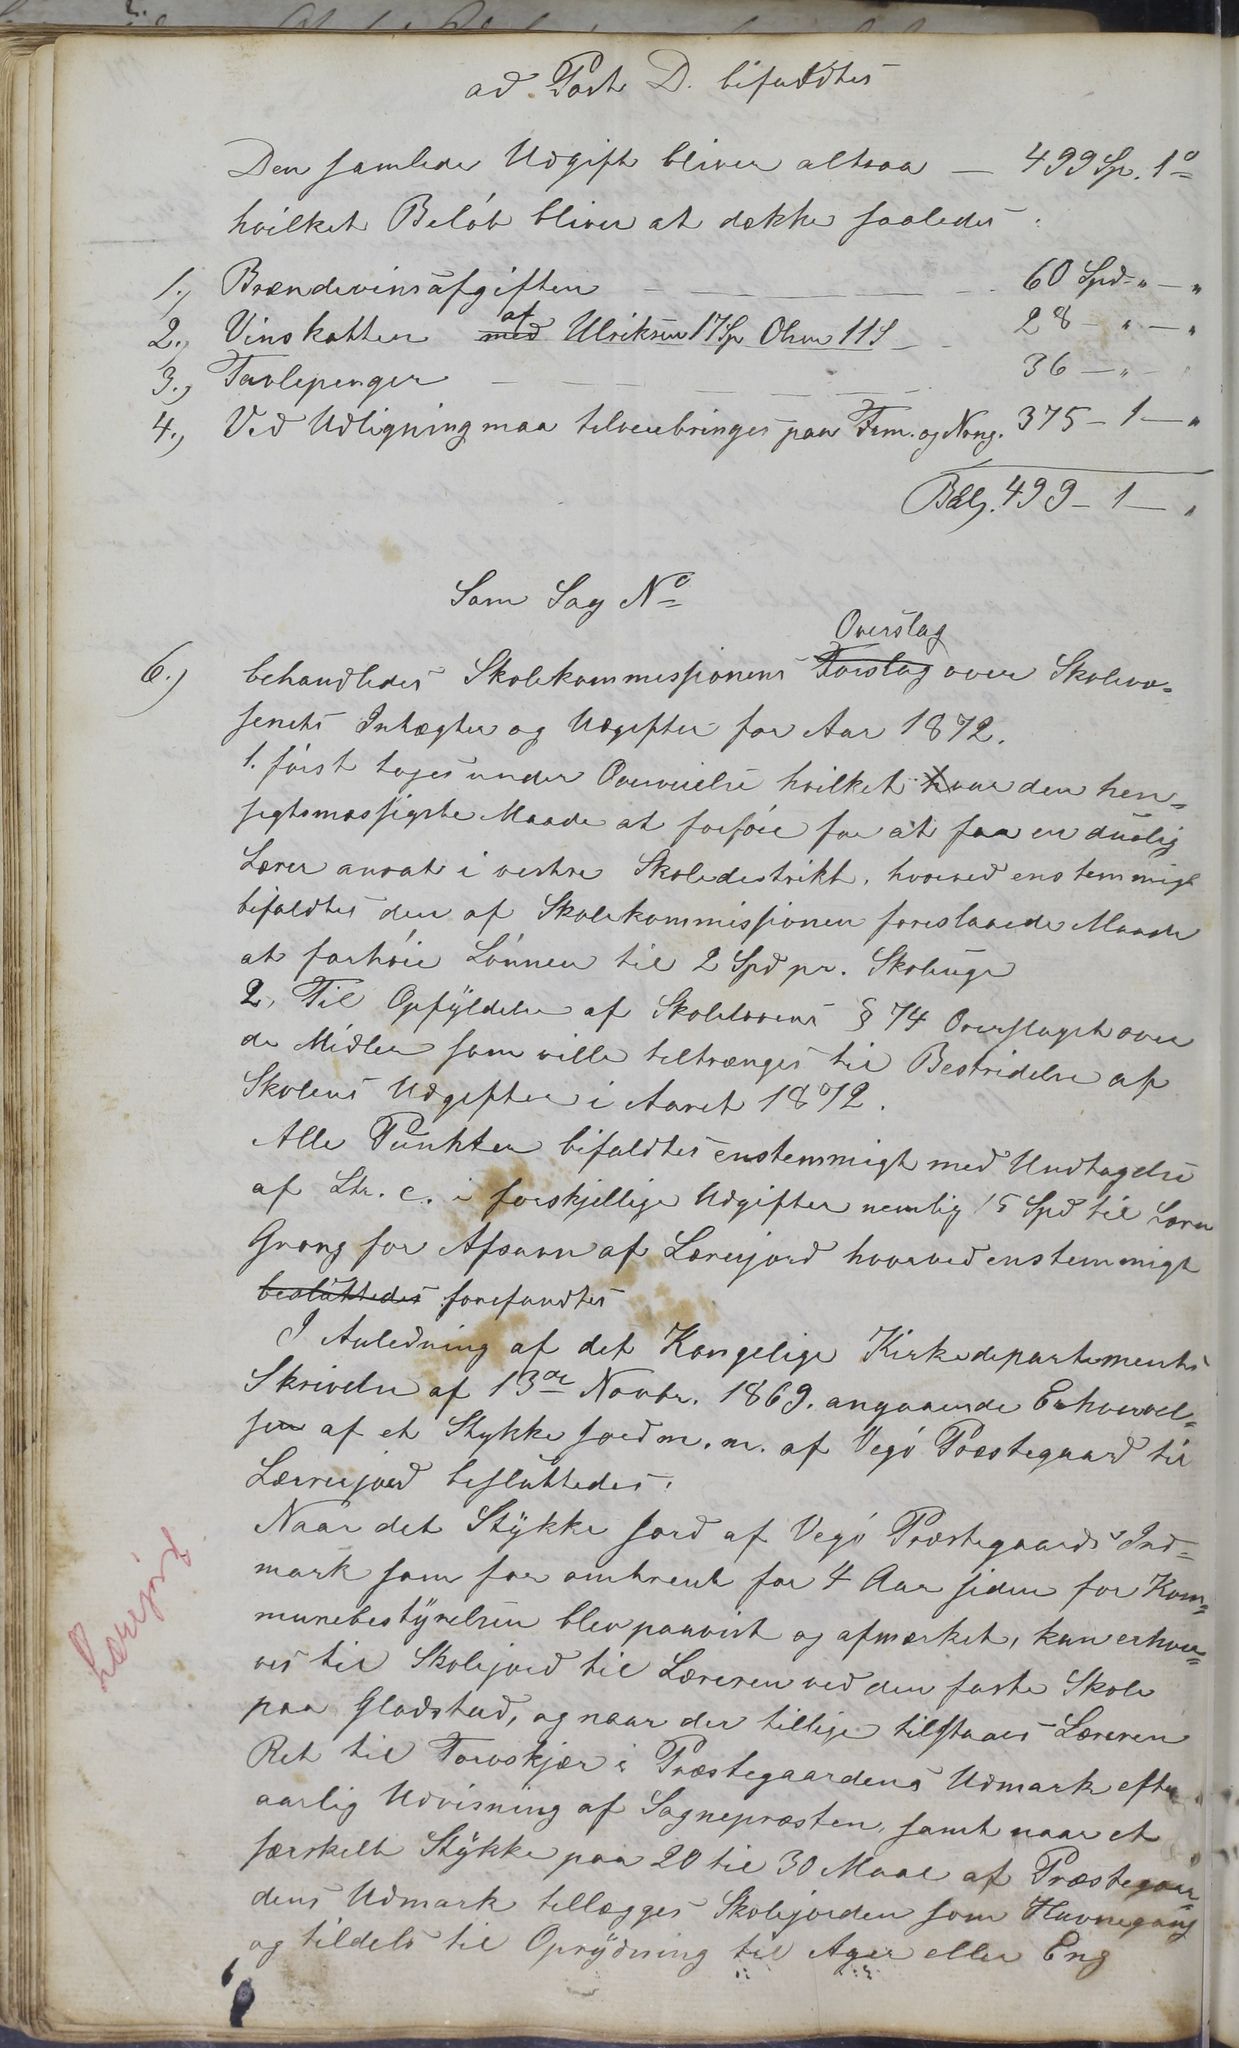 ad Post D. bifaldtes
Den samlede Udgift bliver altsaa — 499 Sp. 1°
hvilket Beløb bliver at dække saaledes:
1., Brændevinsafgiften — 60 Spd - " - "
2., Vinskatten med af Ulriksen 17 Sp Olsen 11 S — 28 - " - "
3., Tavlepenger — 36 - " - "
4., Ved Udligning maa tilveiebringes paa Frm. og Nrng. 375 - 1 - "
Balz. 499 - 1 - "
Som Sag No
Overslag
6.) behandledes Skolekommissionens Forslag over Skolevæ-
senets Indtægter og Udgifter for Aar 1872.
1. først toges under Overveielse hvilket var den hen-
sigtsmæssigste Maade at forføie for at faa en duelig
Lærer ansat i vestre Skoledistrikt, hvorved enstemmigt
bifaldtes den af Skolekommissionen foreslaaede Maade
at forhøie Lønnen til 2 Spd pr. Skoleuge
2, Til Opfyldelse af Skolelovens § 74 Overslaget over
de Midler som ville tiltrænges til Bestridelse af
Skolens Udgifter i Aaret 1872.
Alle Punkter bifaldtes enstemmigt med Undtagelse
af Ltr. c. i forskjellige Udgifter nemlig 15 Spd til Lærer
Grong for Afsavn af Lærerjord hvorved enstemmigt
besluttedes forefandtes
I Anledning af det Kongelige Kirkedepartements
Skrivelse af 13de Novbr. 1869. angaaende Erhvervel-
sen af et Stykke Jord m. m. af Vegø Præstegaard til
Lærerjord besluttedes:
Naar det Stykke Jord af Vegø Præstegaards Ind-
mark som for omtrent for 4 Aar siden for Kom-
munebestyrelsen blev paavist og afmærket, kan erhver-
ves til Skolejord til Læreren ved den faste Skole
paa Gladstad, og naar der tillige tilstaaes Læreren
Ret til Torvskjær i Præstegaardens Udmark efter
aarlig Udvisning af Sognepræsten, samt naar et
særskilt Stykke paa 20 til 30 Maal af Præstegaar-
dens Udmark tillægges Skolejorden som Havnegang
og tildels til Oprydning til Ager eller Eng
Lærerjord